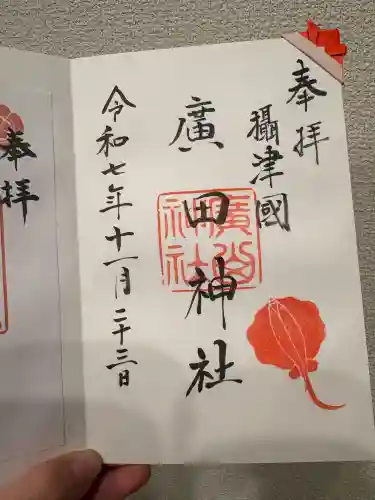 奉拝
攝津國
廣田神社
令和七年十一月二十三日
廣田神社
奉拝